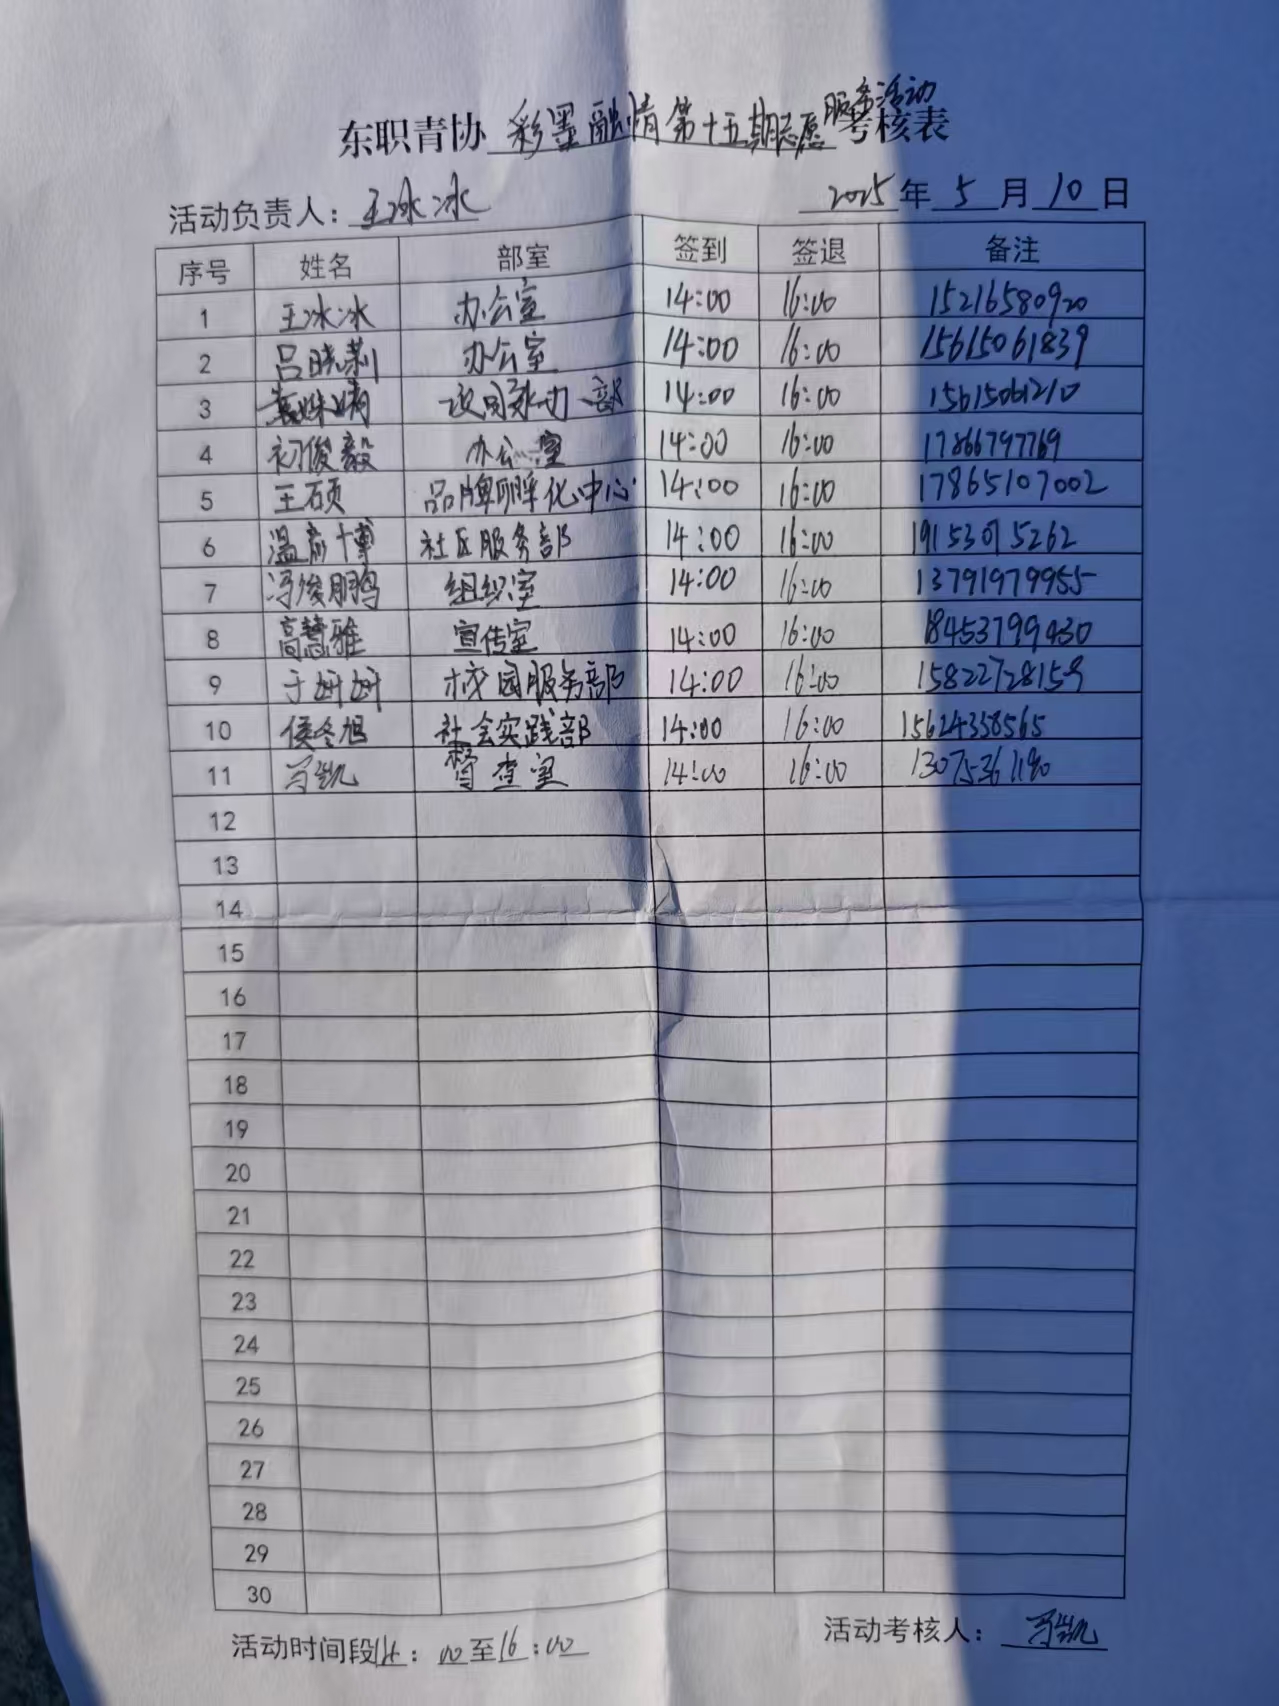 东职青协 彩墨融情第十五期志愿服务活动 考核表
活动负责人：王冰冰 2025年5月10日
序号 姓名 部室 签到 签退 备注
1 王冰冰 办公室 14:00 16:00 15216580920
2 吕晓莉 办公室 14:00 16:00 15615061839
3 14:00 16:00 15615061210
4 初俊毅 办公室 14:00 16:00 17866797769
5 王硕 品牌孵化中心 14:00 16:00 17865107002
6 温蔚博 社区服务部 14:00 16:00 19153015262
7 冯俊鹏 组织室 14:00 16:00 13791979955
8 高慧雅 宣传室 14:00 16:00 18453799430
9 于妍妍 校园服务部 14:00 16:00 15822728159
10 侯冬旭 社会实践部 14:00 16:00 15624358565
11 马凯 督查室 14:00 16:00 13075361190
12
13
14
15
16
17
18
19
20
21
22
23
24
25
26
27
28
29
30
活动时间段14：00至16：00 活动考核人：马凯